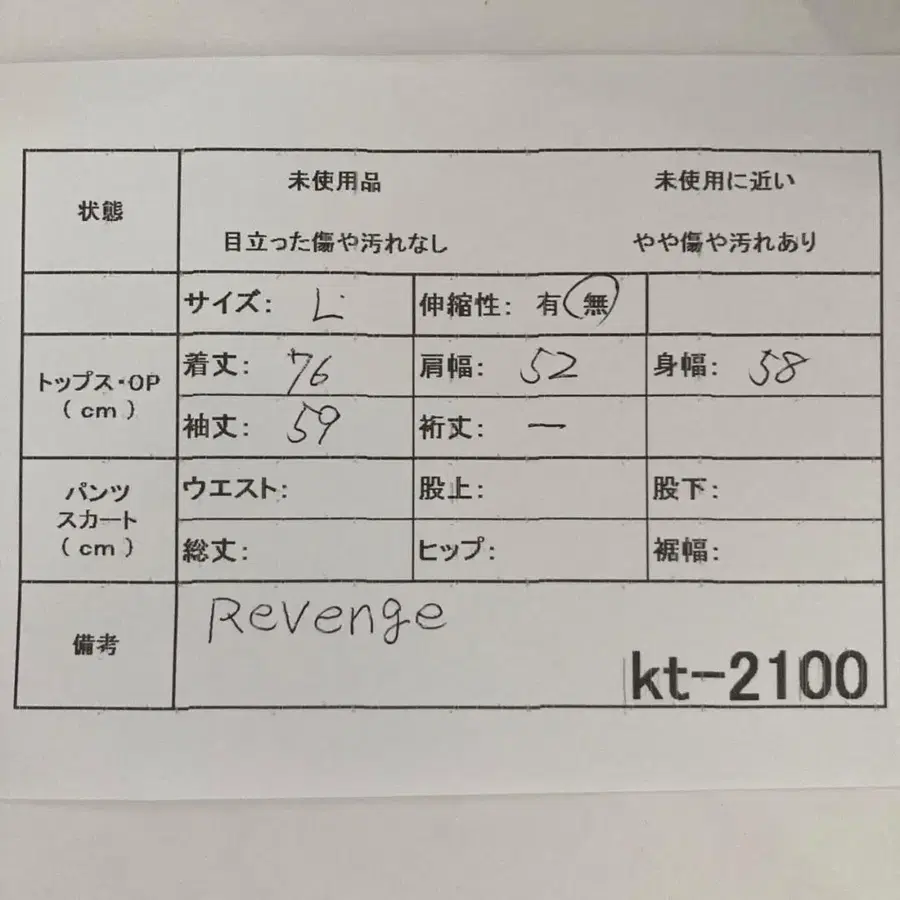 状態
未使用品 未使用に近い
目立った傷や汚れなし やや傷や汚れあり
サイズ: L 伸縮性: 有 無
トップス・OP
(cm)
着丈: 76 肩幅: 52 身幅: 58
袖丈: 59 裄丈: ー
パンツ
スカート
(cm)
ウエスト: 股上: 股下:
総丈: ヒップ: 裾幅:
備考
Revenge
kt-2100